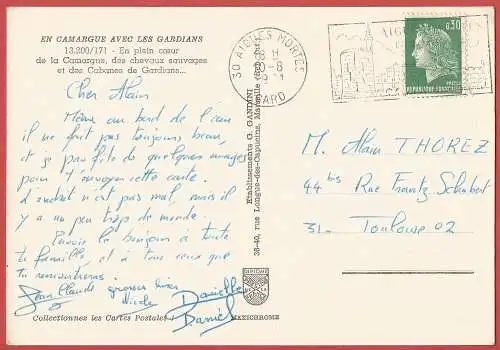 EN CAMARGUE AVEC LES GARDIANS
13.200/171 - En plein cœur
de la Camargue, des chevaux sauvages
et des Cabanes de Gardians...
Cher Alain
Même au bord de l'eau
il ne fait pas toujours beau,
et je profite de quelques nuages
pour t'envoyer cette carte.
L'endroit n'est pas mal, mais il
y a un peu trop de monde.
le bonjour à toute
ta famille, et à tous ceux que
tu rencontreras.
Jean Claude grosses bises
Nicole Danielle
Daniel
Collectionnez les Cartes Postales
MEXICHROME
Etablissements G. GANDINI
36-40, rue Longue-des-Capucins, Marseille
30 AIGUES MORTES
GARD
0,30
REPUBLIQUE FRANÇAISE
M. Alain THOREZ
44 bis Rue Frantz Schubert
31. Toulouse 02